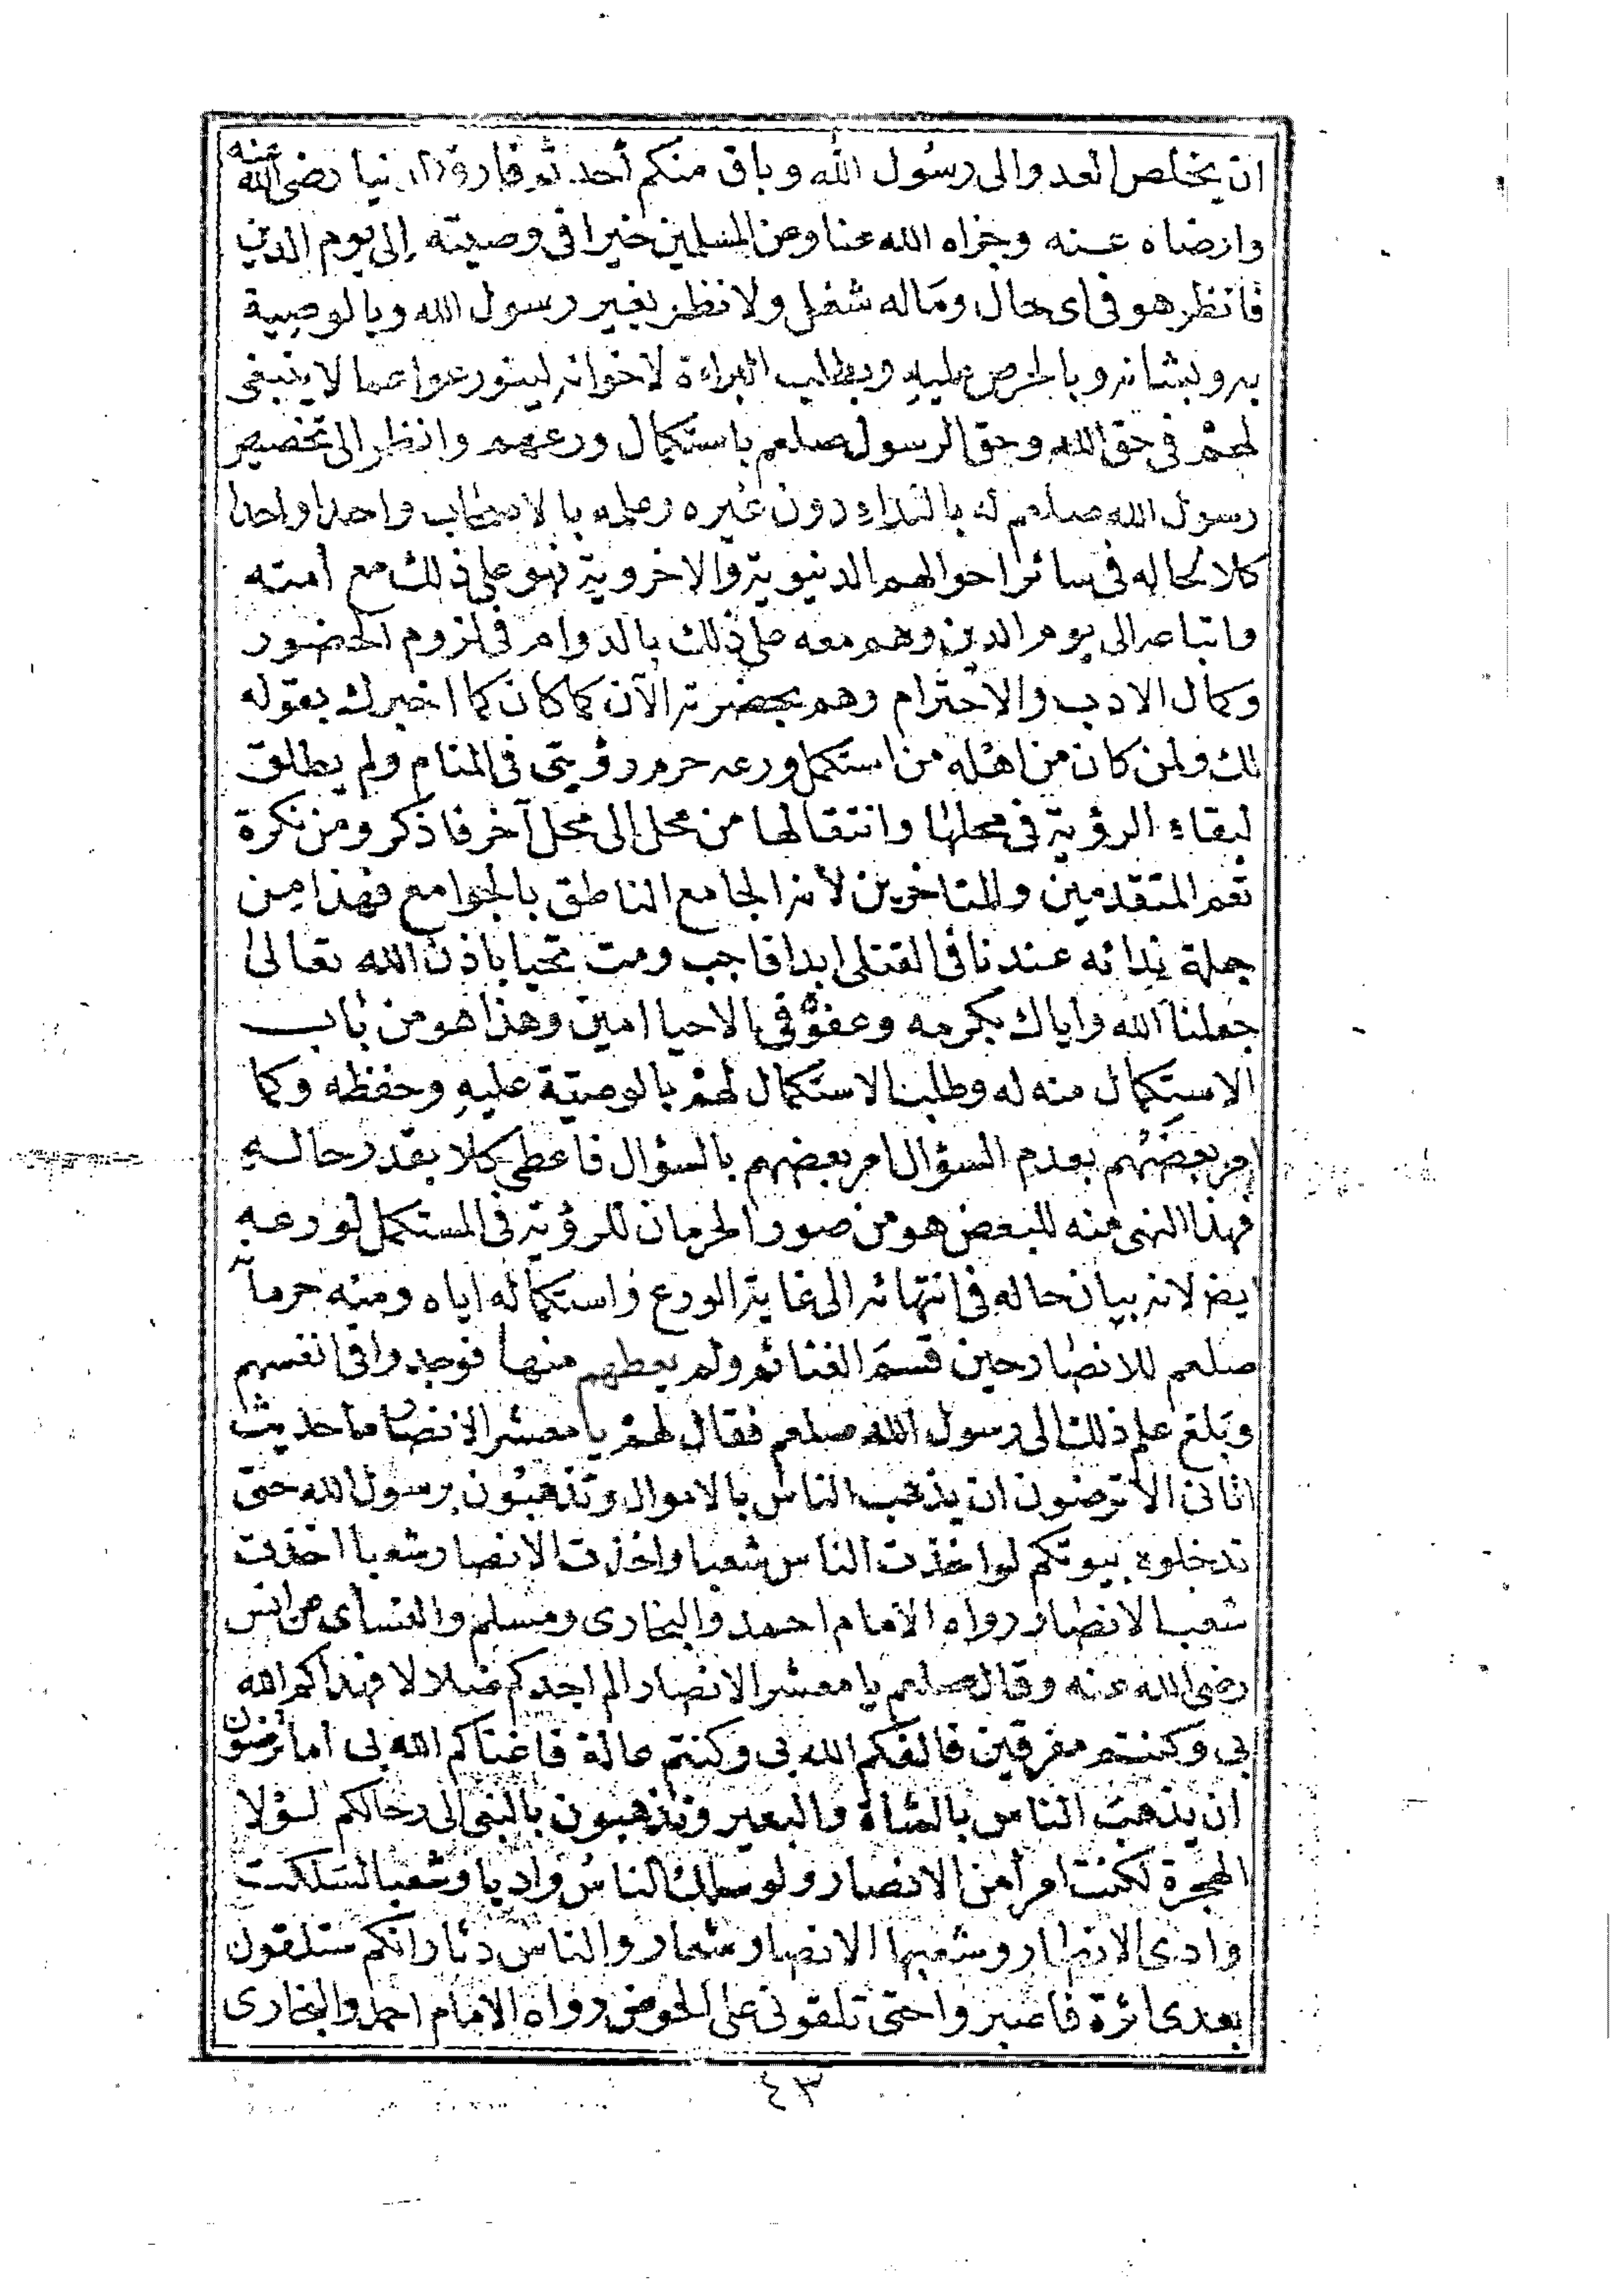 ان يخلص العدو الى رسول الله وباق منكم أحد ثم فارق الدنيا رضى الله عنه
وارضاه عنه وجزاه الله عنا وعن المسلمين خيرا فى وصيته إلى يوم الدين
فانظر هو فى اى حال وماله شغل ولا نظر بغير رسول الله وبالوصية
به وبشانه وبالحرص عليه وبطلب البراءة لاخوانه ليتورعوا عما لا ينبغى
لهم فى حق الله وحق الرسول صلعم باستكمال ورعهم وانظر الى تخصيص
رسول الله صلعم له بالنداء دون غيره وعلمه بالاصحاب واحدا واحدا
كلا بحاله فى سائر احوالهم الدنيوية والاخروية فهو على ذلك مع امته
واتباعه الى يوم الدين وهم معه على ذلك بالدوام فى لزوم الحضور
وكمال الادب والاحترام وهم بحضرته الآن كما كان كما اخبرك بقوله
لك ولمن كان من اهله من استكمل ورعه حرم رؤيتى فى المنام ولم يطلق
لبقاء الرؤية فى محلها وانتقالها من محل الى محل آخر فاذكر ومن نكرة
تعم المتقدمين والمتاخرين لانه الجامع الناطق بالجوامع فهذا من
جملة ندائه عندنا فى القتلى ابدا فاجب ومت تحيا باذن الله تعالى
جعلنا الله واياك بكرمه وعفوه فى الاحيا امين وهذا هو من باب
الاستكمال منه له وطلب الاستكمال لهم بالوصية عليه وحفظه وكما
امر بعضهم بعدم السؤال امر بعضهم بالسؤال فاعطى كلا بقدر حاله
فهذا النهى منه للبعض هو من صور الحرمان للرؤية فى المستكمل لورعه
ايضا لانه بيان حاله فى انتهائه الى غاية الورع واستكماله اياه ومنه حرمانه
صلعم للانصار حين قسم الغنائم ولم يعطهم منها فوجدوا فى انفسهم
وبلغ علم ذلك الى رسول الله صلعم فقال لهم يا معشر الانصار ما حديث
اتانى الا ترضون ان يذهب الناس بالاموال وتذهبون برسول الله حتى
تدخلوه بيوتكم لو اخذت الناس شعبا واخذت الانصار شعبا اخذت
شعب الانصار رواه الامام احمد والبخارى ومسلم والنساى عن انس
رضى الله عنه وقال صلعم يا معشر الانصار الم اجدكم ضلالا فهداكم الله
بى وكنتم مفرقين فالفكم الله بى وكنتم عالة فاغناكم الله بى اما ترضون
ان يذهب الناس بالشاة والبعير وتذهبون بالنبى الى رحالكم لولا
الهجرة لكنت امرأ من الانصار ولو سلك الناس واديا وشعبا لسلكت
وادى الانصار وشعبها الانصار شعار والناس دثار انكم ستلقون
بعدى اثرة فاصبروا حتى تلقونى على الحوض رواه الامام احمد والبخارى
٤٣